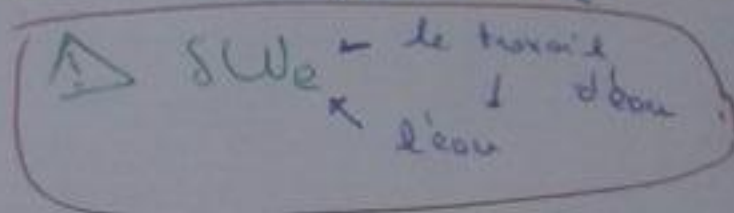 ⚠ δWe ← le travail
↖ ↓ d'eau
l'eau